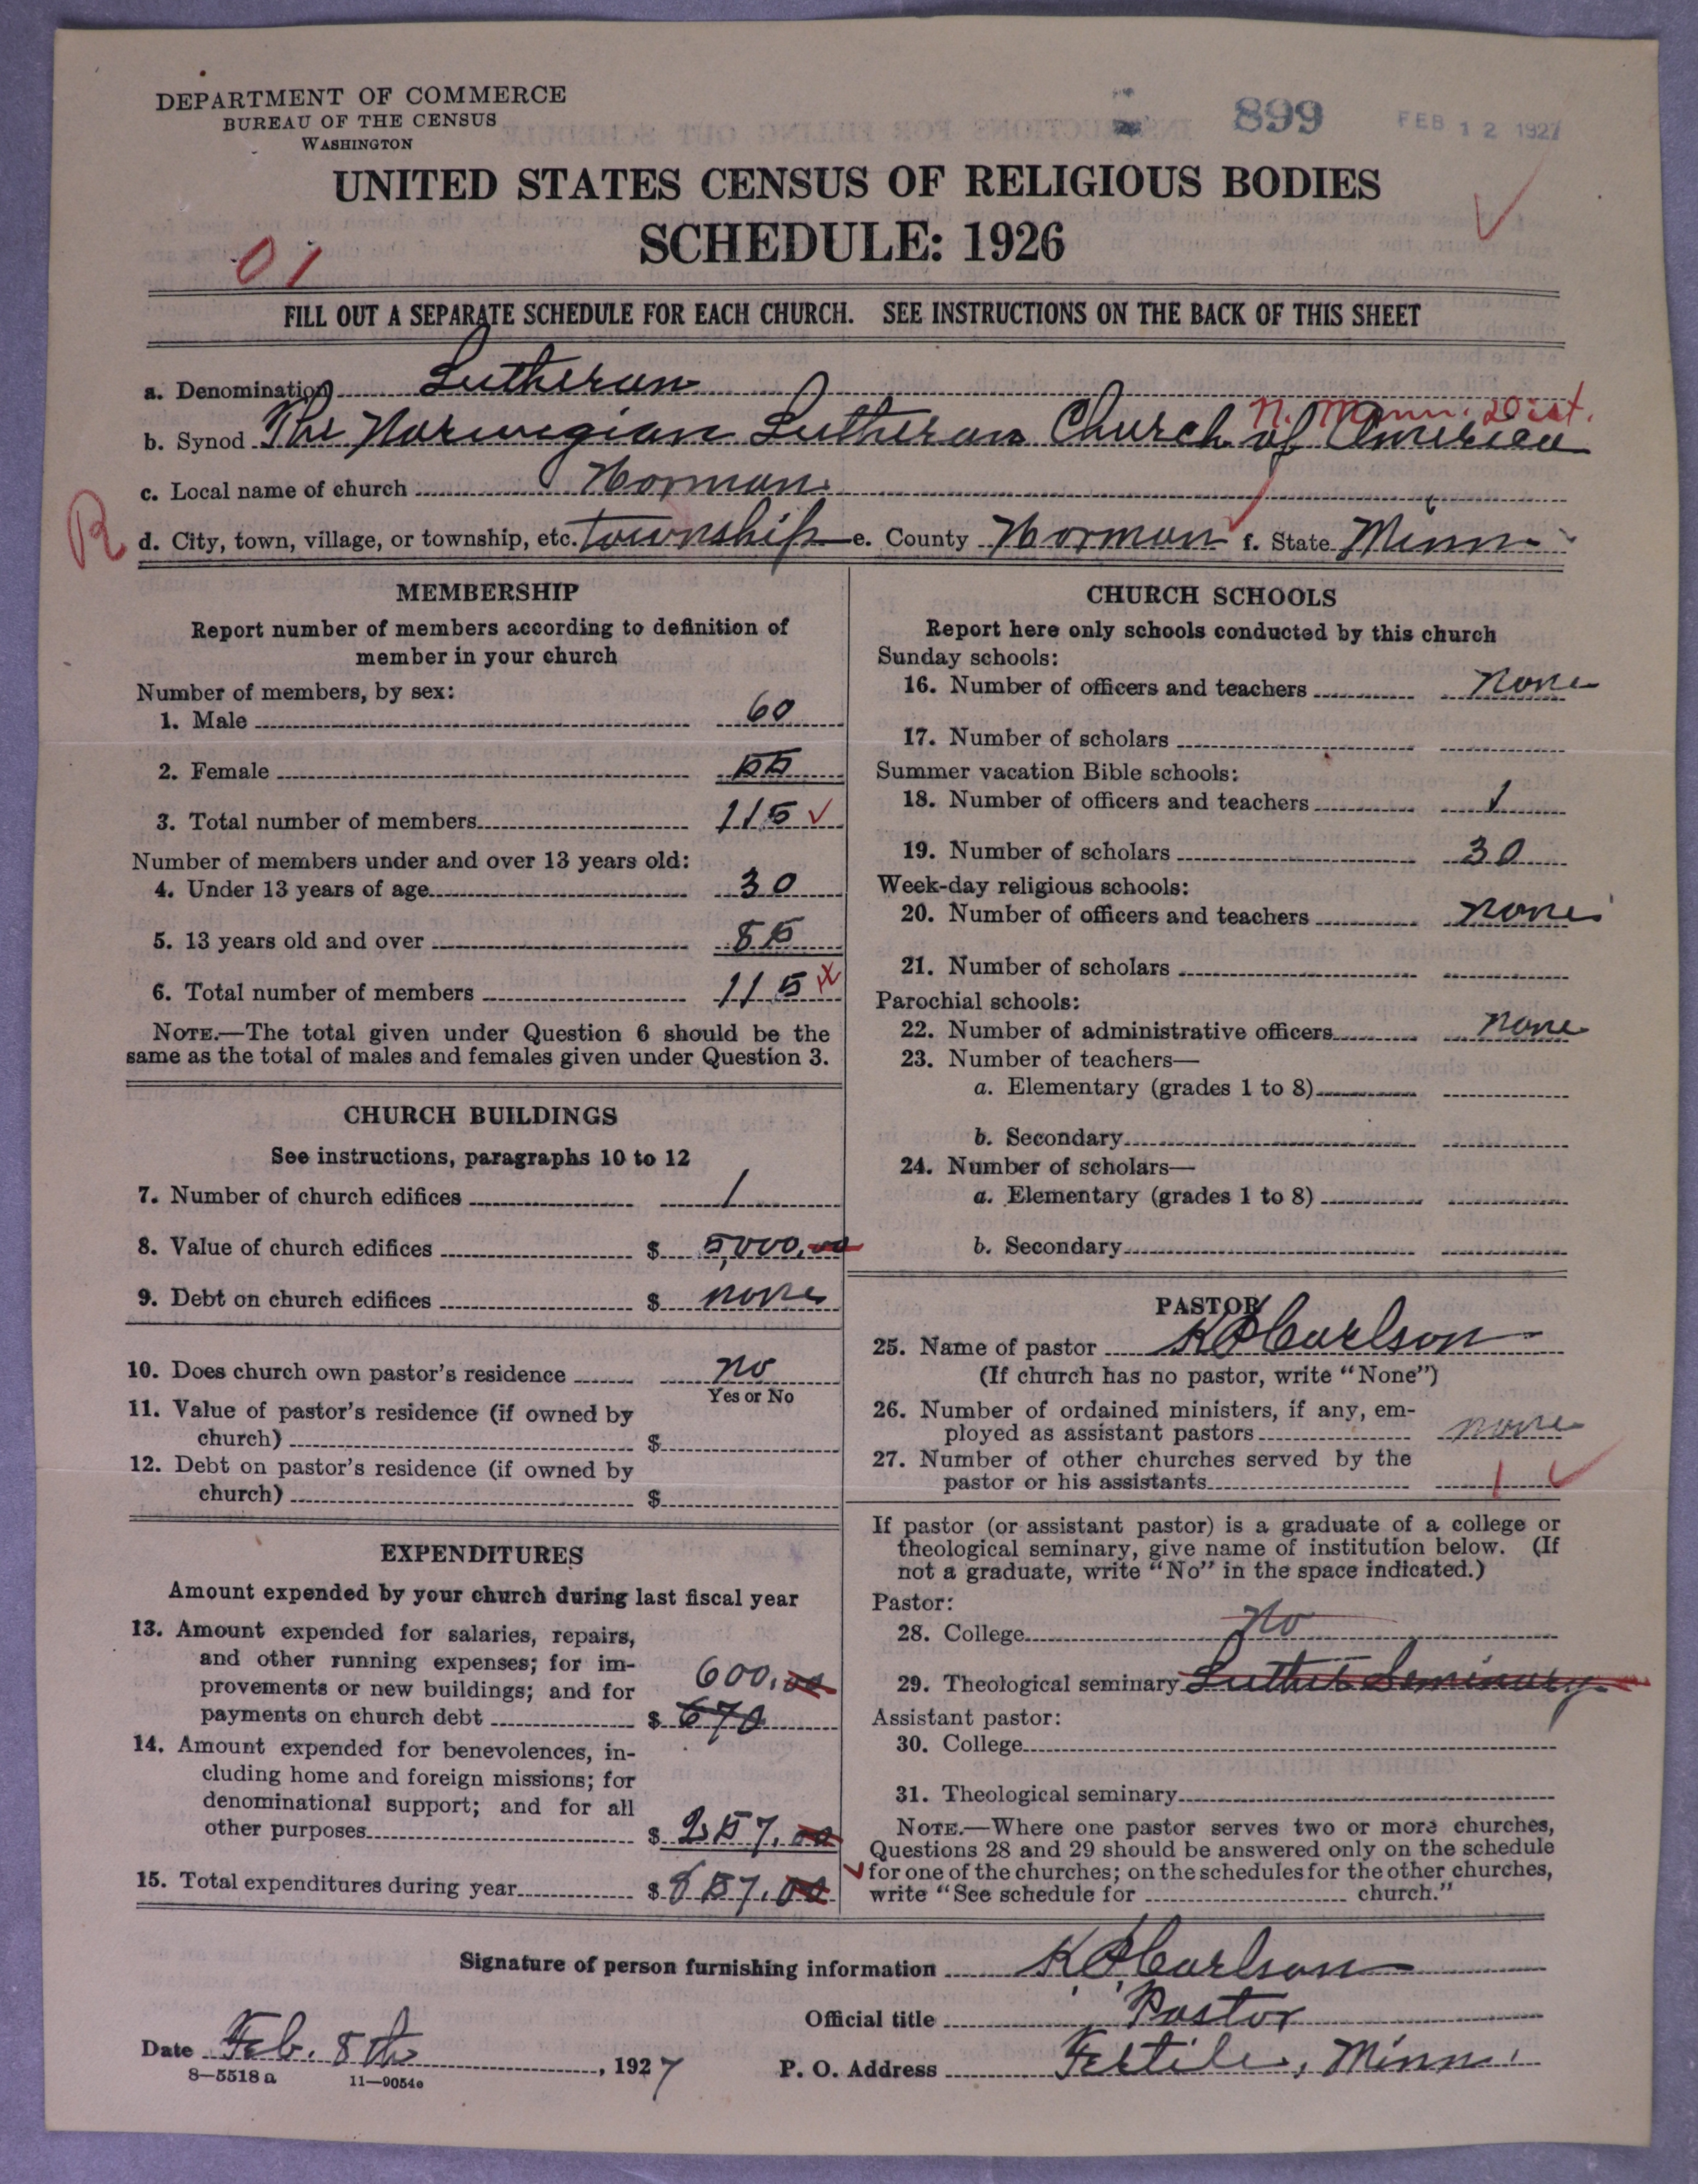 DEPARTMENT OF COMMERCE
BUREAU OF THE CENSUS
WASHINGTON
899
FEB 12 1927
UNITED STATES CENSUS OF RELIGIOUS BODIES
SCHEDULE: 1926
01
FILL OUT A SEPARATE SCHEDULE FOR EACH CHURCH. SEE INSTRUCTIONS ON THE BACK OF THIS SHEET
a. Denomination Lutheran
N. Minn. Dist.
b. Synod The Norwegian Lutheran Church of America
c. Local name of church Norman
R
d. City, town, village, or township, etc. township e. County Norman f. State Minn
MEMBERSHIP
Report number of members according to definition of
member in your church
Number of members, by sex:
1. Male 60
2. Female 55
3. Total number of members 115
Number of members under and over 13 years old:
4. Under 13 years of age 30
5. 13 years old and over 85
6. Total number of members 115
NOTE.—The total given under Question 6 should be the
same as the total of males and females given under Question 3.
CHURCH BUILDINGS
See instructions, paragraphs 10 to 12
7. Number of church edifices 1
8. Value of church edifices $ 5,000.00
9. Debt on church edifices $ none
10. Does church own pastor's residence no
Yes or No
11. Value of pastor's residence (if owned by
church) $
12. Debt on pastor's residence (if owned by
church) $
EXPENDITURES
Amount expended by your church during last fiscal year
13. Amount expended for salaries, repairs,
and other running expenses; for im-
provements or new buildings; and for 600.00
payments on church debt $ 670
14. Amount expended for benevolences, in-
cluding home and foreign missions; for
denominational support; and for all
other purposes $ 257.00
15. Total expenditures during year $ 857.00
CHURCH SCHOOLS
Report here only schools conducted by this church
Sunday schools:
16. Number of officers and teachers none
17. Number of scholars
Summer vacation Bible schools:
18. Number of officers and teachers 1
19. Number of scholars 30
Week-day religious schools:
20. Number of officers and teachers none
21. Number of scholars
Parochial schools:
22. Number of administrative officers none
23. Number of teachers—
a. Elementary (grades 1 to 8)
b. Secondary
24. Number of scholars—
a. Elementary (grades 1 to 8)
b. Secondary
PASTOR
25. Name of pastor K O Carlson
(If church has no pastor, write "None")
26. Number of ordained ministers, if any, em-
ployed as assistant pastors none
27. Number of other churches served by the
pastor or his assistants 1
If pastor (or assistant pastor) is a graduate of a college or
theological seminary, give name of institution below. (If
not a graduate, write "No" in the space indicated.)
Pastor:
28. College no
29. Theological seminary Luther Seminary
Assistant pastor:
30. College
31. Theological seminary
NOTE.—Where one pastor serves two or more churches,
Questions 28 and 29 should be answered only on the schedule
for one of the churches; on the schedules for the other churches,
write "See schedule for church."
Signature of person furnishing information K O Carlson
Official title Pastor
Date Feb. 8th, 1927 P. O. Address Fertile, Minn.
8—5518 a 11—9054e